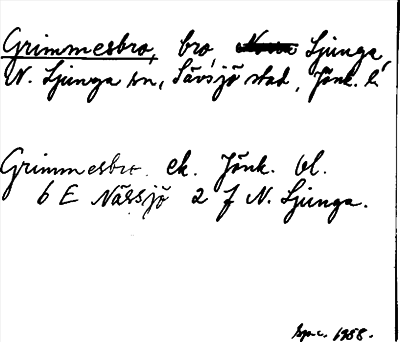 Grimmesbro, bro, Ljunga,
N. Ljunga sn, Sävsjö stad, Jönk. l.
Grimmesbro. ek. Jönk. bl.
6 E Nässjö 2 f N. Ljunga.
1988.